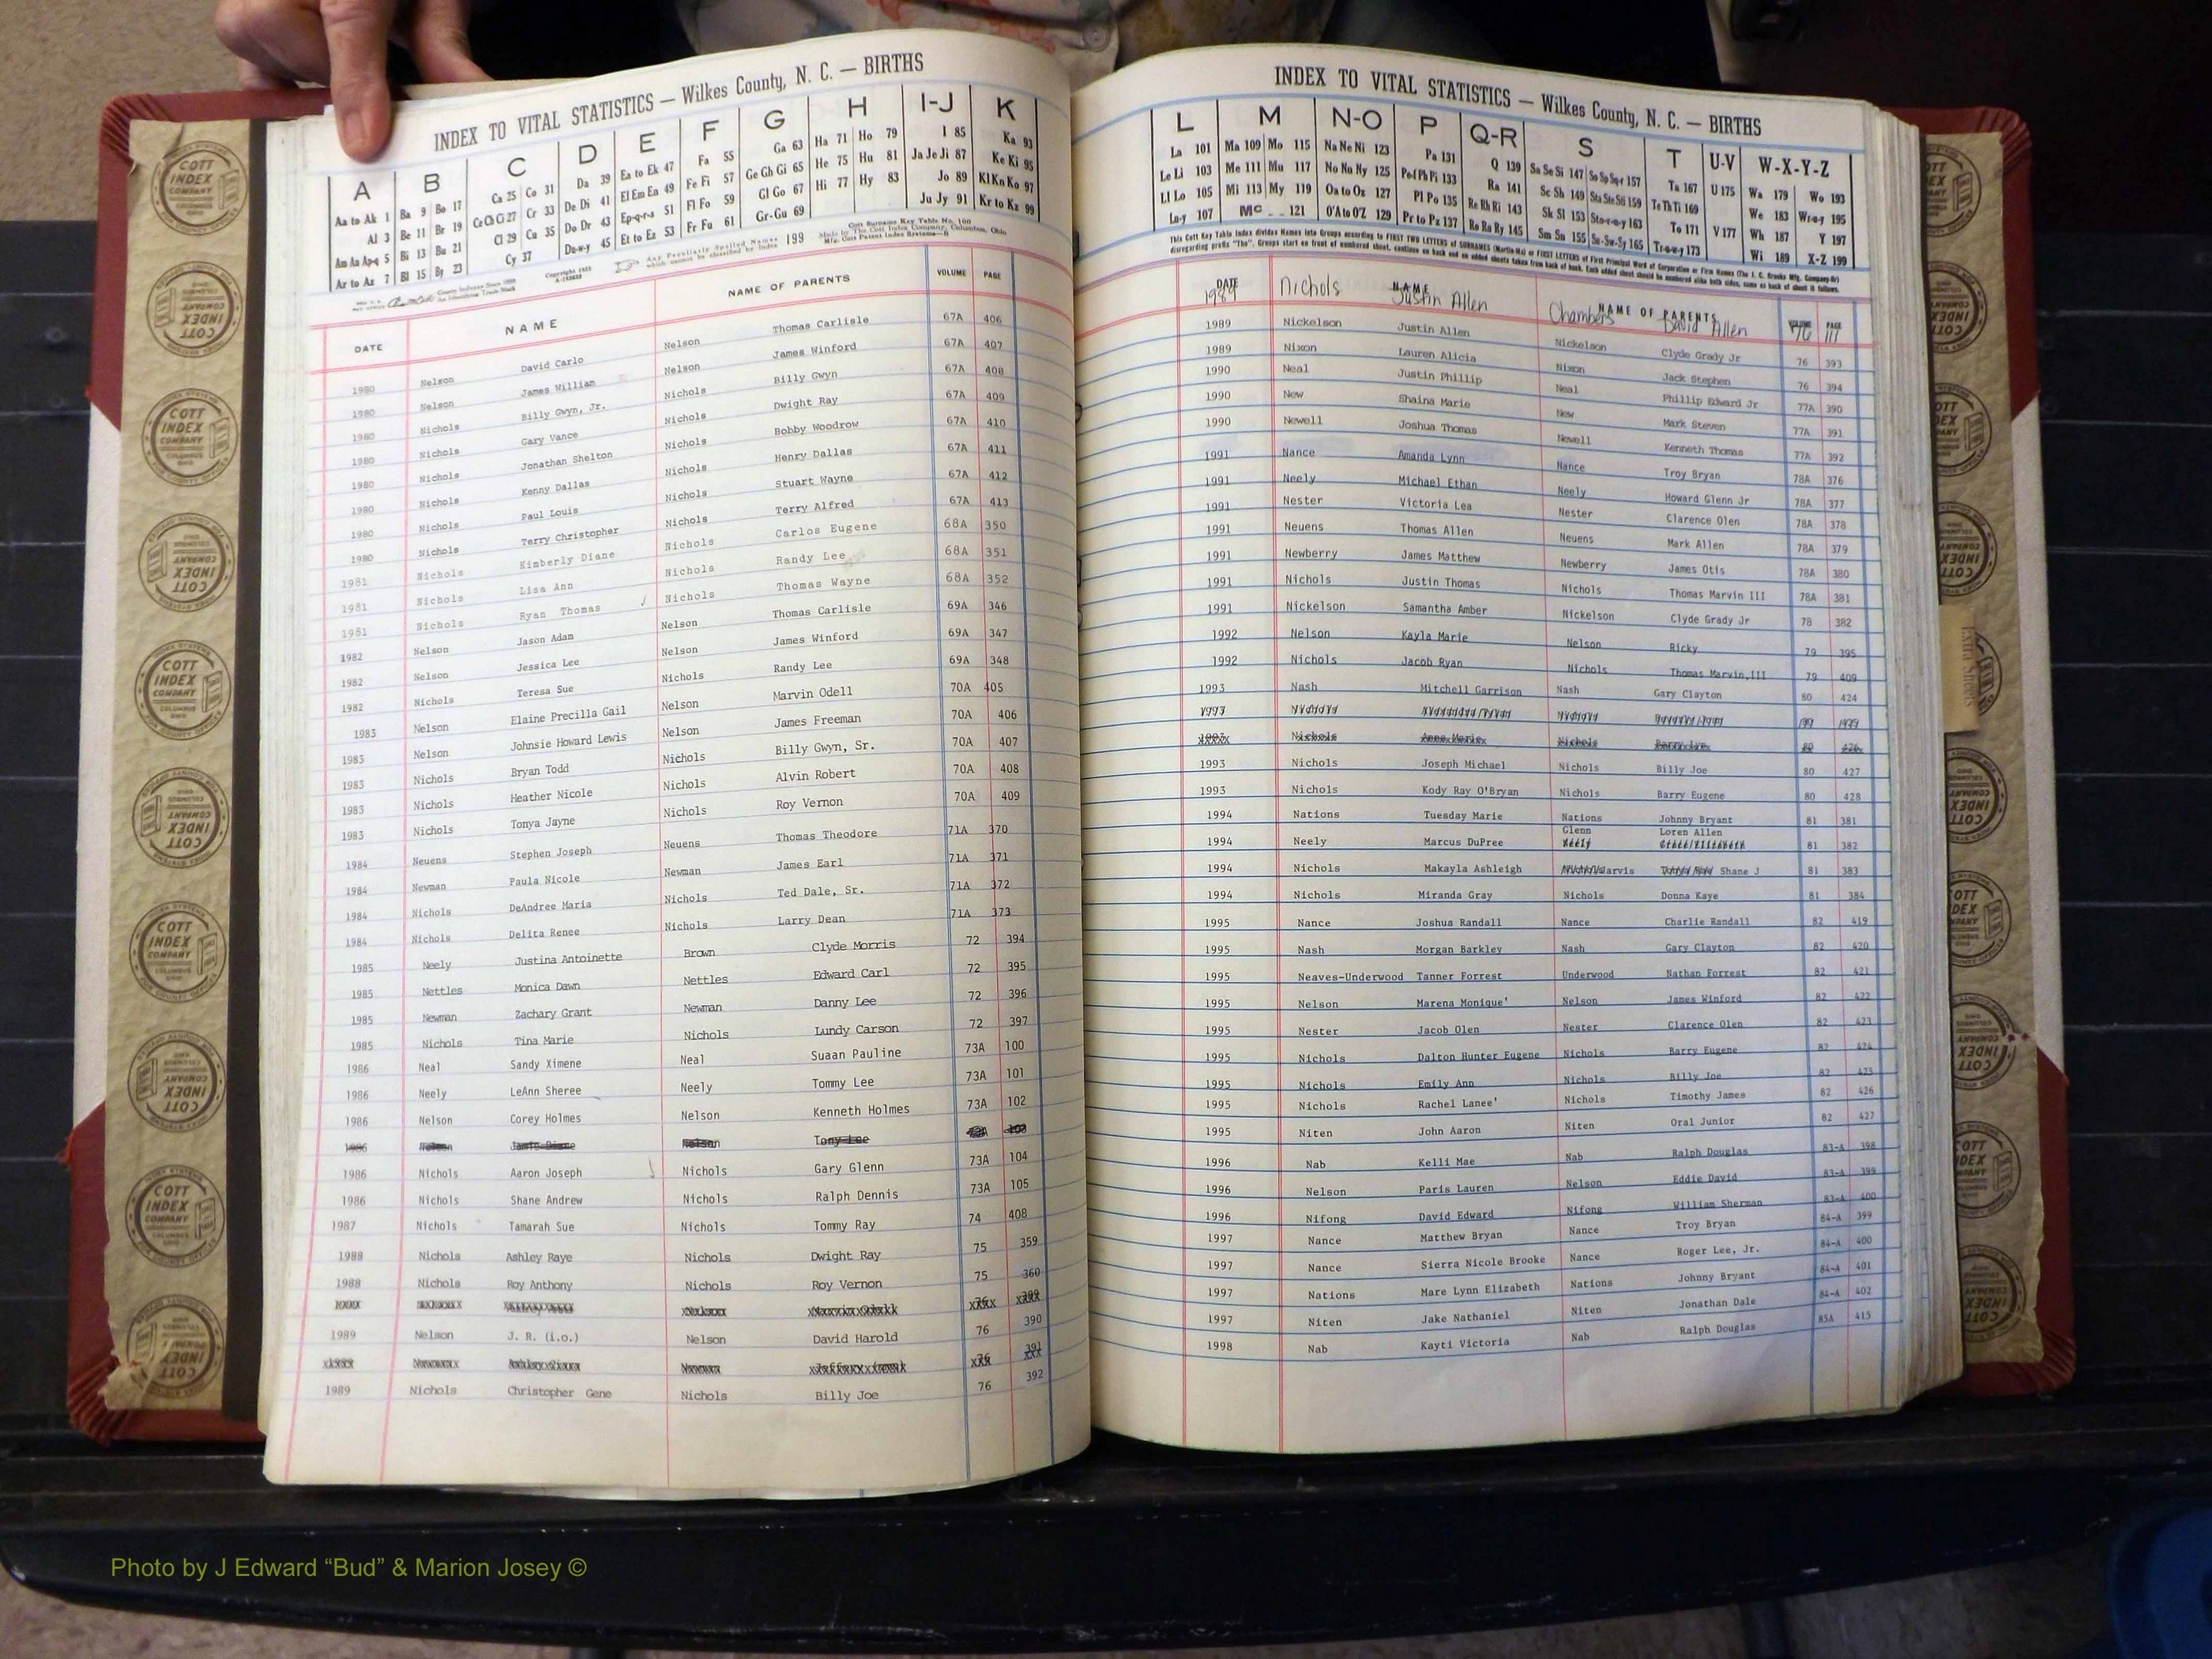 INDEX TO VITAL STATISTICS — Wilkes County, N. C. — BIRTHS
A B C D E F G H I-J K
Aa to Ak 1 Ba 9 Bo 17 Ca 25 Co 31 Da 39 Ea to Ek 47 Fa 55 Ga 63 Ha 71 Ho 79 I 85 Ka 93
Al 3 Be 11 Br 19 Ce Ch Ci 27 Cr 33 De Di 41 El Em En 49 Fe Fi 57 Ge Gh Gi 65 He 75 Hu 81 Ja Je Ji 87 Ke Ki 95
Am An Ap-q 5 Bi 13 Bu 21 Cl 29 Cu 35 Do Dr 43 Ep-q-r-s 51 Fl Fo 59 Gl Go 67 Hi 77 Hy 83 Jo 89 Kl Kn Ko 97
Ar to Az 7 Bl 15 By 23 Cy 37 Du-w-y 45 Et to Ez 53 Fr Fu 61 Gr-Gu 69 Ju Jy 91 Kr to Kz 99
Any Peculiarly Spelled Names which cannot be classified by Index 199
Cott Surname Key Table No. 100
Made by The Cott Index Company, Columbus, Ohio
DATE NAME NAME OF PARENTS VOLUME PAGE
1980 Nelson David Carlo Nelson Thomas Carlisle 67A 406
1980 Nelson James William Nelson James Winford 67A 407
1980 Nichols Billy Gwyn, Jr. Nichols Billy Gwyn 67A 408
1980 Nichols Gary Vance Nichols Dwight Ray 67A 409
1980 Nichols Jonathan Shelton Nichols Bobby Woodrow 67A 410
1980 Nichols Kenny Dallas Nichols Henry Dallas 67A 411
1980 Nichols Paul Louis Nichols Stuart Wayne 67A 412
1980 Nichols Terry Christopher Nichols Terry Alfred 67A 413
1981 Nichols Kimberly Diane Nichols Carlos Eugene 68A 350
1981 Nichols Lisa Ann Nichols Randy Lee 68A 351
1981 Nichols Ryan Thomas Nichols Thomas Wayne 68A 352
1982 Nelson Jason Adam Nelson Thomas Carlisle 69A 346
1982 Nelson Jessica Lee Nelson James Winford 69A 347
1982 Nichols Teresa Sue Nichols Randy Lee 69A 348
1983 Nelson Elaine Precilla Gail Nelson Marvin Odell 70A 405
1983 Nelson Johnsie Howard Lewis Nelson James Freeman 70A 406
1983 Nichols Bryan Todd Nichols Billy Gwyn, Sr. 70A 407
1983 Nichols Heather Nicole Nichols Alvin Robert 70A 408
1983 Nichols Tonya Jayne Nichols Roy Vernon 70A 409
1984 Neuens Stephen Joseph Neuens Thomas Theodore 71A 370
1984 Newman Paula Nicole Newman James Earl 71A 371
1984 Nichols DeAndree Maria Nichols Ted Dale, Sr. 71A 372
1984 Nichols Delita Renee Nichols Larry Dean 71A 373
1985 Neely Justina Antoinette Brown Clyde Morris 72 394
1985 Nettles Monica Dawn Nettles Edward Carl 72 395
1985 Newman Zachary Grant Newman Danny Lee 72 396
1985 Nichols Tina Marie Nichols Lundy Carson 72 397
1986 Neal Sandy Ximene Neal Suaan Pauline 73A 100
1986 Neely LeAnn Sheree Neely Tommy Lee 73A 101
1986 Nelson Corey Holmes Nelson Kenneth Holmes 73A 102
1986 Nelson Jamie Diane Nelson Tony Lee 73A 103
1986 Nichols Aaron Joseph Nichols Gary Glenn 73A 104
1986 Nichols Shane Andrew Nichols Ralph Dennis 73A 105
1987 Nichols Tamarah Sue Nichols Tommy Ray 74 408
1988 Nichols Ashley Raye Nichols Dwight Ray 75 359
1988 Nichols Roy Anthony Nichols Roy Vernon 75 360
1989 Nelson J. R. (i.o.) Nelson David Harold 76 390
76 391
1989 Nichols Christopher Gene Nichols Billy Joe 76 392
INDEX TO VITAL STATISTICS — Wilkes County, N. C. — BIRTHS
L M N-O P Q-R S T U-V W-X-Y-Z
La 101 Ma 109 Mo 115 Na Ne Ni 123 Pa 131 Q 139 Sa Se Si 147 So Sp Sq-r 157 Ta 167 U 175 Wa 179 Wo 193
Le Li 103 Me 111 Mu 117 No Nu Ny 125 Pe-f Ph Pi 133 Ra 141 Sc Sh 149 Sta Ste Sti 159 Te Th Ti 169 V 177 We 183 Wr-u-y 195
Ll Lo 105 Mi 113 My 119 Oa to Oz 127 Pl Po 135 Re Rh Ri 143 Sk Sl 153 Sto-r-u-y 163 To 171 Wh 187 Y 197
Lu-y 107 Mc 121 O'A to O'Z 129 Pr to Pz 137 Ro Ru Ry 145 Sm Sn 155 Su-Sw-Sy 165 Tr-u-w-y 173 Wi 189 X-Z 199
DATE NAME NAME OF PARENTS VOLUME PAGE
1989 Nichols Justin Allen Chambers David Allen 76 111
1989 Nickelson Justin Allen Nickelson Clyde Grady Jr 76 393
1989 Nixon Lauren Alicia Nixon Jack Stephen 76 394
1990 Neal Justin Phillip Neal Phillip Edward Jr 77A 390
1990 New Shaina Marie New Mark Steven 77A 391
1990 Newell Joshua Thomas Newell Kenneth Thomas 77A 392
1991 Nance Amanda Lynn Nance Troy Bryan 78A 376
1991 Neely Michael Ethan Neely Howard Glenn Jr 78A 377
1991 Nester Victoria Lea Nester Clarence Olen 78A 378
1991 Neuens Thomas Allen Neuens Mark Allen 78A 379
1991 Newberry James Matthew Newberry James Otis 78A 380
1991 Nichols Justin Thomas Nichols Thomas Marvin III 78A 381
1991 Nickelson Samantha Amber Nickelson Clyde Grady Jr 78 382
1992 Nelson Kayla Marie Nelson Ricky 79 395
1992 Nichols Jacob Ryan Nichols Thomas Marvin,III 79 409
1993 Nash Mitchell Garrison Nash Gary Clayton 80 424
1993 Nichols Anne Marie Nichols Barry Lyn 80 426
1993 Nichols Joseph Michael Nichols Billy Joe 80 427
1993 Nichols Kody Ray O'Bryan Nichols Barry Eugene 80 428
1994 Nations Tuesday Marie Nations Johnny Bryant 81 381
Glenn Loren Allen
1994 Neely Marcus DuPree Neely 81 382
1994 Nichols Makayla Ashleigh Jarvis Shane J 81 383
1994 Nichols Miranda Gray Nichols Donna Kaye 81 384
1995 Nance Joshua Randall Nance Charlie Randall 82 419
1995 Nash Morgan Barkley Nash Gary Clayton 82 420
1995 Neaves-Underwood Tanner Forrest Underwood Nathan Forrest 82 421
1995 Nelson Marena Monique' Nelson James Winford 82 422
1995 Nester Jacob Olen Nester Clarence Olen 82 423
1995 Nichols Dalton Hunter Eugene Nichols Barry Eugene 82 424
1995 Nichols Emily Ann Nichols Billy Joe 82 425
1995 Nichols Rachel Lanee' Nichols Timothy James 82 426
1995 Niten John Aaron Niten Oral Junior 82 427
1996 Nab Kelli Mae Nab Ralph Douglas 83-A 398
1996 Nelson Paris Lauren Nelson Eddie David 83-A 399
1996 Nifong David Edward Nifong William Sherman 83-A 400
1997 Nance Matthew Bryan Nance Troy Bryan 84-A 399
1997 Nance Sierra Nicole Brooke Nance Roger Lee, Jr. 84-A 400
1997 Nations Mare Lynn Elizabeth Nations Johnny Bryant 84-A 401
1997 Niten Jake Nathaniel Niten Jonathan Dale 84-A 402
1998 Nab Kayti Victoria Nab Ralph Douglas 85A 415
COTT INDEX COMPANY
Extra Sheets
Photo by J Edward “Bud” & Marion Josey ©